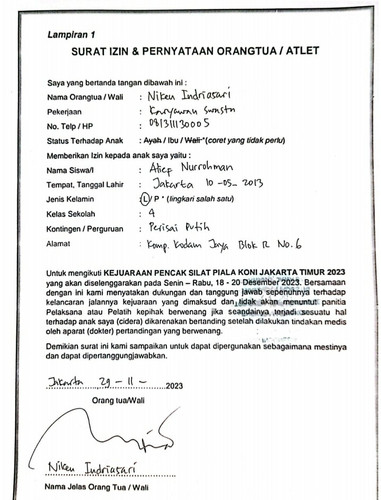 Lampiran 1
SURAT IZIN & PERNYATAAN ORANGTUA / ATLET
Saya yang bertanda tangan dibawah ini :
Nama Orangtua / Wali : Niken Indriasari
Pekerjaan : Karyawan swasta
No. Telp / HP : 081311130005
Status Terhadap Anak : Ayah / Ibu / Wali *(coret yang tidak perlu)
Memberikan Izin kepada anak saya yaitu :
Nama Siswa/I : Atiep Nurrohman
Tempat, Tanggal Lahir : Jakarta 10-05-2013
Jenis Kelamin : L / P * (lingkari salah satu)
Kelas Sekolah : 4
Kontingen / Perguruan : Perisai Putih
Alamat : Komp. Kodam Jaya Blok R No. 6
Untuk mengikuti KEJUARAAN PENCAK SILAT PIALA KONI JAKARTA TIMUR 2023
yang akan diselenggarakan pada Senin – Rabu, 18 - 20 Desember 2023. Bersamaan
dengan ini kami menyatakan dukungan dan tanggung jawab sepenuhnya terhadap
kelancaran jalannya kejuaraan yang dimaksud dan tidak akan menuntut panitia
Pelaksana atau Pelatih kepihak berwenang jika seandainya terjadi sesuatu hal
terhadap anak saya (cidera) dikarenakan bertanding setelah dilakukan tindakan medis
oleh aparat (dokter) pertandingan yang berwenang.
Demikian surat ini kami sampaikan untuk dapat dipergunakan sebagaimana mestinya
dan dapat dipertanggungjawabkan.
Jakarta 29-11- 2023
Orang tua/Wali
Niken Indriasari
Nama Jelas Orang Tua / Wali